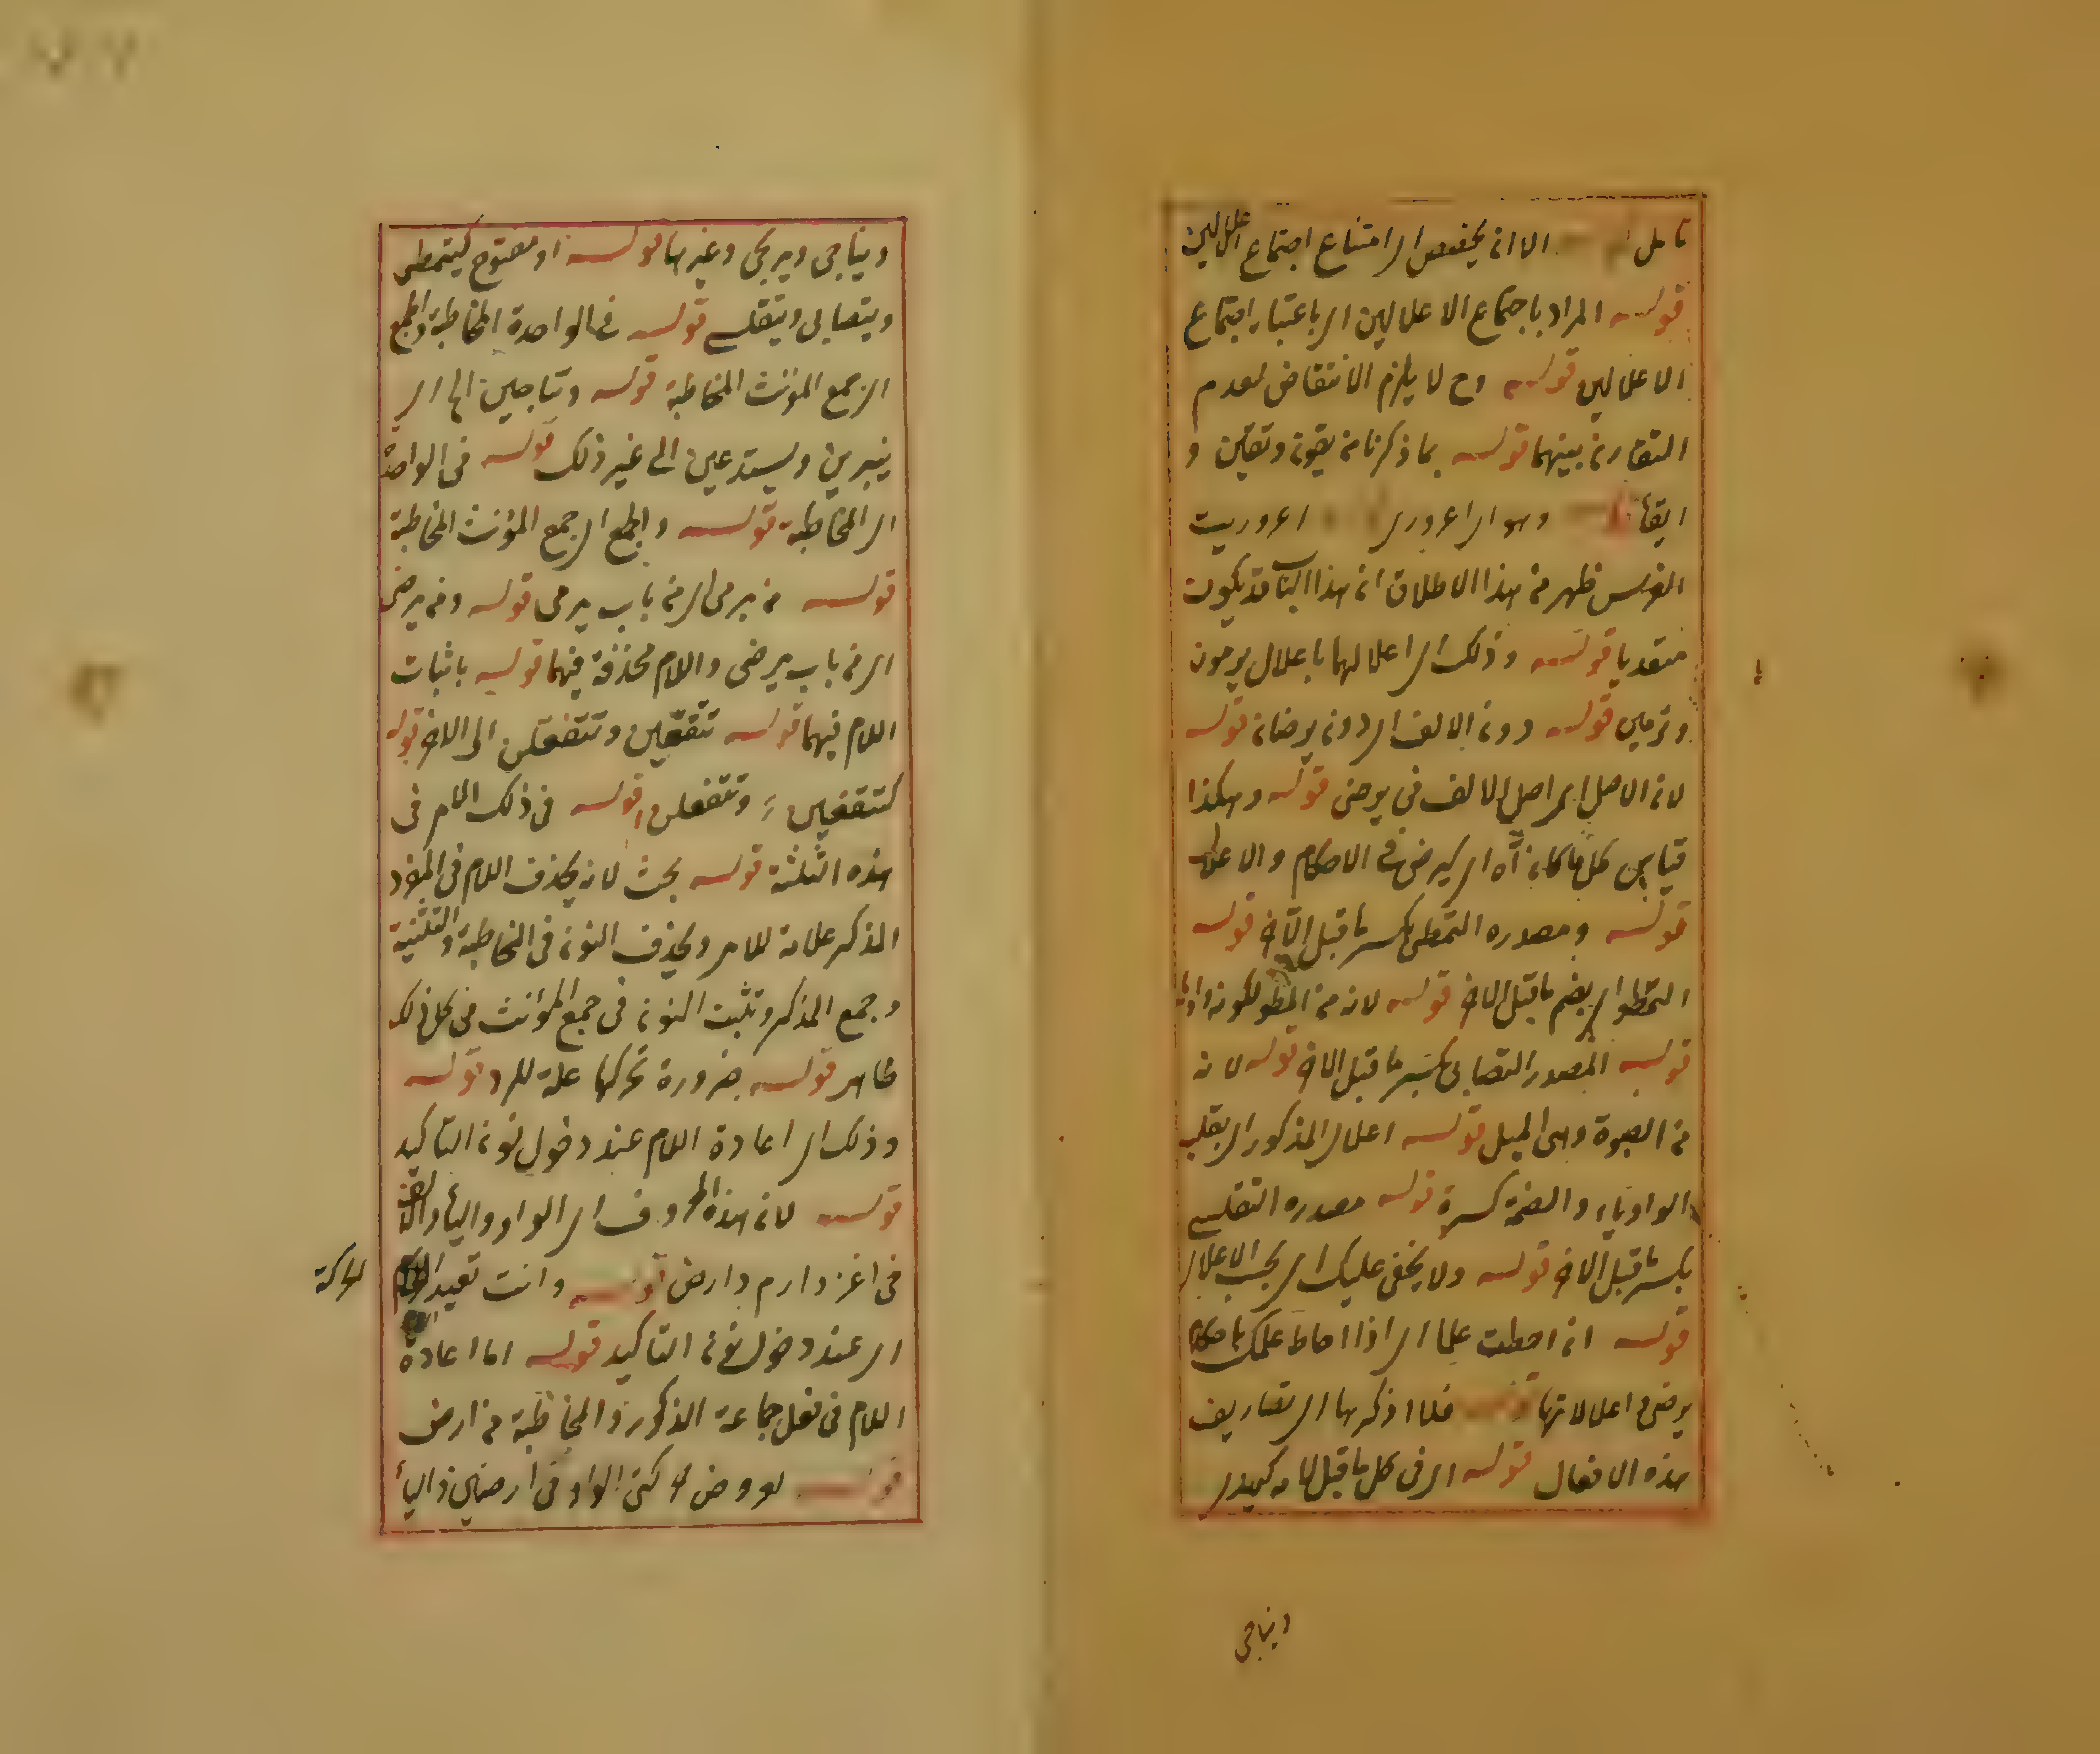 تامل الا ان يخصص اى امتناع اجتماع اعلالين
قوله المراد باجتماع الاعلالين اى باعتبار اجتماع
الاعلالين قوله وح لا يلزم الانتقاض لعدم
التقارن بينهما قوله بما ذكرنا من يقون وتقين و
ايقاء وهو اى اعرورى اعروريت
الفرس ظهر من هذا الاطلاق ان هذا الباب قد يكون
متعديا قوله وذلك اى اعلالهما باعلال يرمون
وترمين قوله دون الالف اى دون يرضان قوله
لان الاصل اى اصل الالف فى يرضى قوله وهكذا
قياس كل ما كان آه اى كيرضى فى الاحكام والاعلال
قوله ومصدره التمطى بكسر ما قبل الآخر قوله
التمطو اى بضم ما قبل الاخر قوله لانه من المطو لكونه واويا
قوله المصدر التصابى بكسر ما قبل الاخر قوله لانه
من الصبوة وهى الميل قوله اعلال المذكور اى بقلب
الواو ياء والضمة كسرة قوله مصدره التقلسى
بكسر ما قبل الاخر قوله ولا يخفى عليك اى بحسب الاعلال
قوله ان احطت علما اى اذا احاط علمك باحكام
يرضى واعلالاتها قوله فلا اذكرها اى تصاريف
هذه الافعال قوله اى فى كل ما قبل لامه كيهدى
ويناجى
ويناجى ويرتجى وغيرها قوله او مفتوح كيتمطى
ويتصابى ويتقلسى قوله فى الواحدة المخاطبة والجمع
اى جمع المؤنث المخاطبة قوله وتناجين الخ اى
ينبرين ويستدعين الى غير ذلك قوله فى الواحدة
اى المخاطبة قوله والجمع اى جمع المؤنث المخاطبة
قوله من يرمى اى من باب يرمى قوله ومن يرضى
اى من باب يرضى واللام محذوفة فيهما قوله باثبات
اللام فيهما قوله تتفعين وتتفعلن الى الاخر قوله
كتتفعين وتتفعلن قوله فى ذلك الامر فى
هذه الثلثة قوله بحث لانه يحذف اللام فى المفرد
المذكر علامة للامر ويحذف النون فى المخاطبة والتثنية
وجمع المذكر وتثبت النون فى جمع المؤنث فى كل ذلك
ظاهر قوله ضرورة تحركها علة للرد قوله
وذلك اى اعادة اللام عند دخول نون التاكيد
قوله لان هذه الحروف اى الواو والياء والالف
فى اغز وارم وارض قوله وانت تعيد اللام
الحركة
اى عند دخول نون التاكيد قوله اما اعادة
اللام فى فعل جماعة الذكور والمخاطبة من ارض
قوله لعروض حركتى الواو فى ارضين والياء